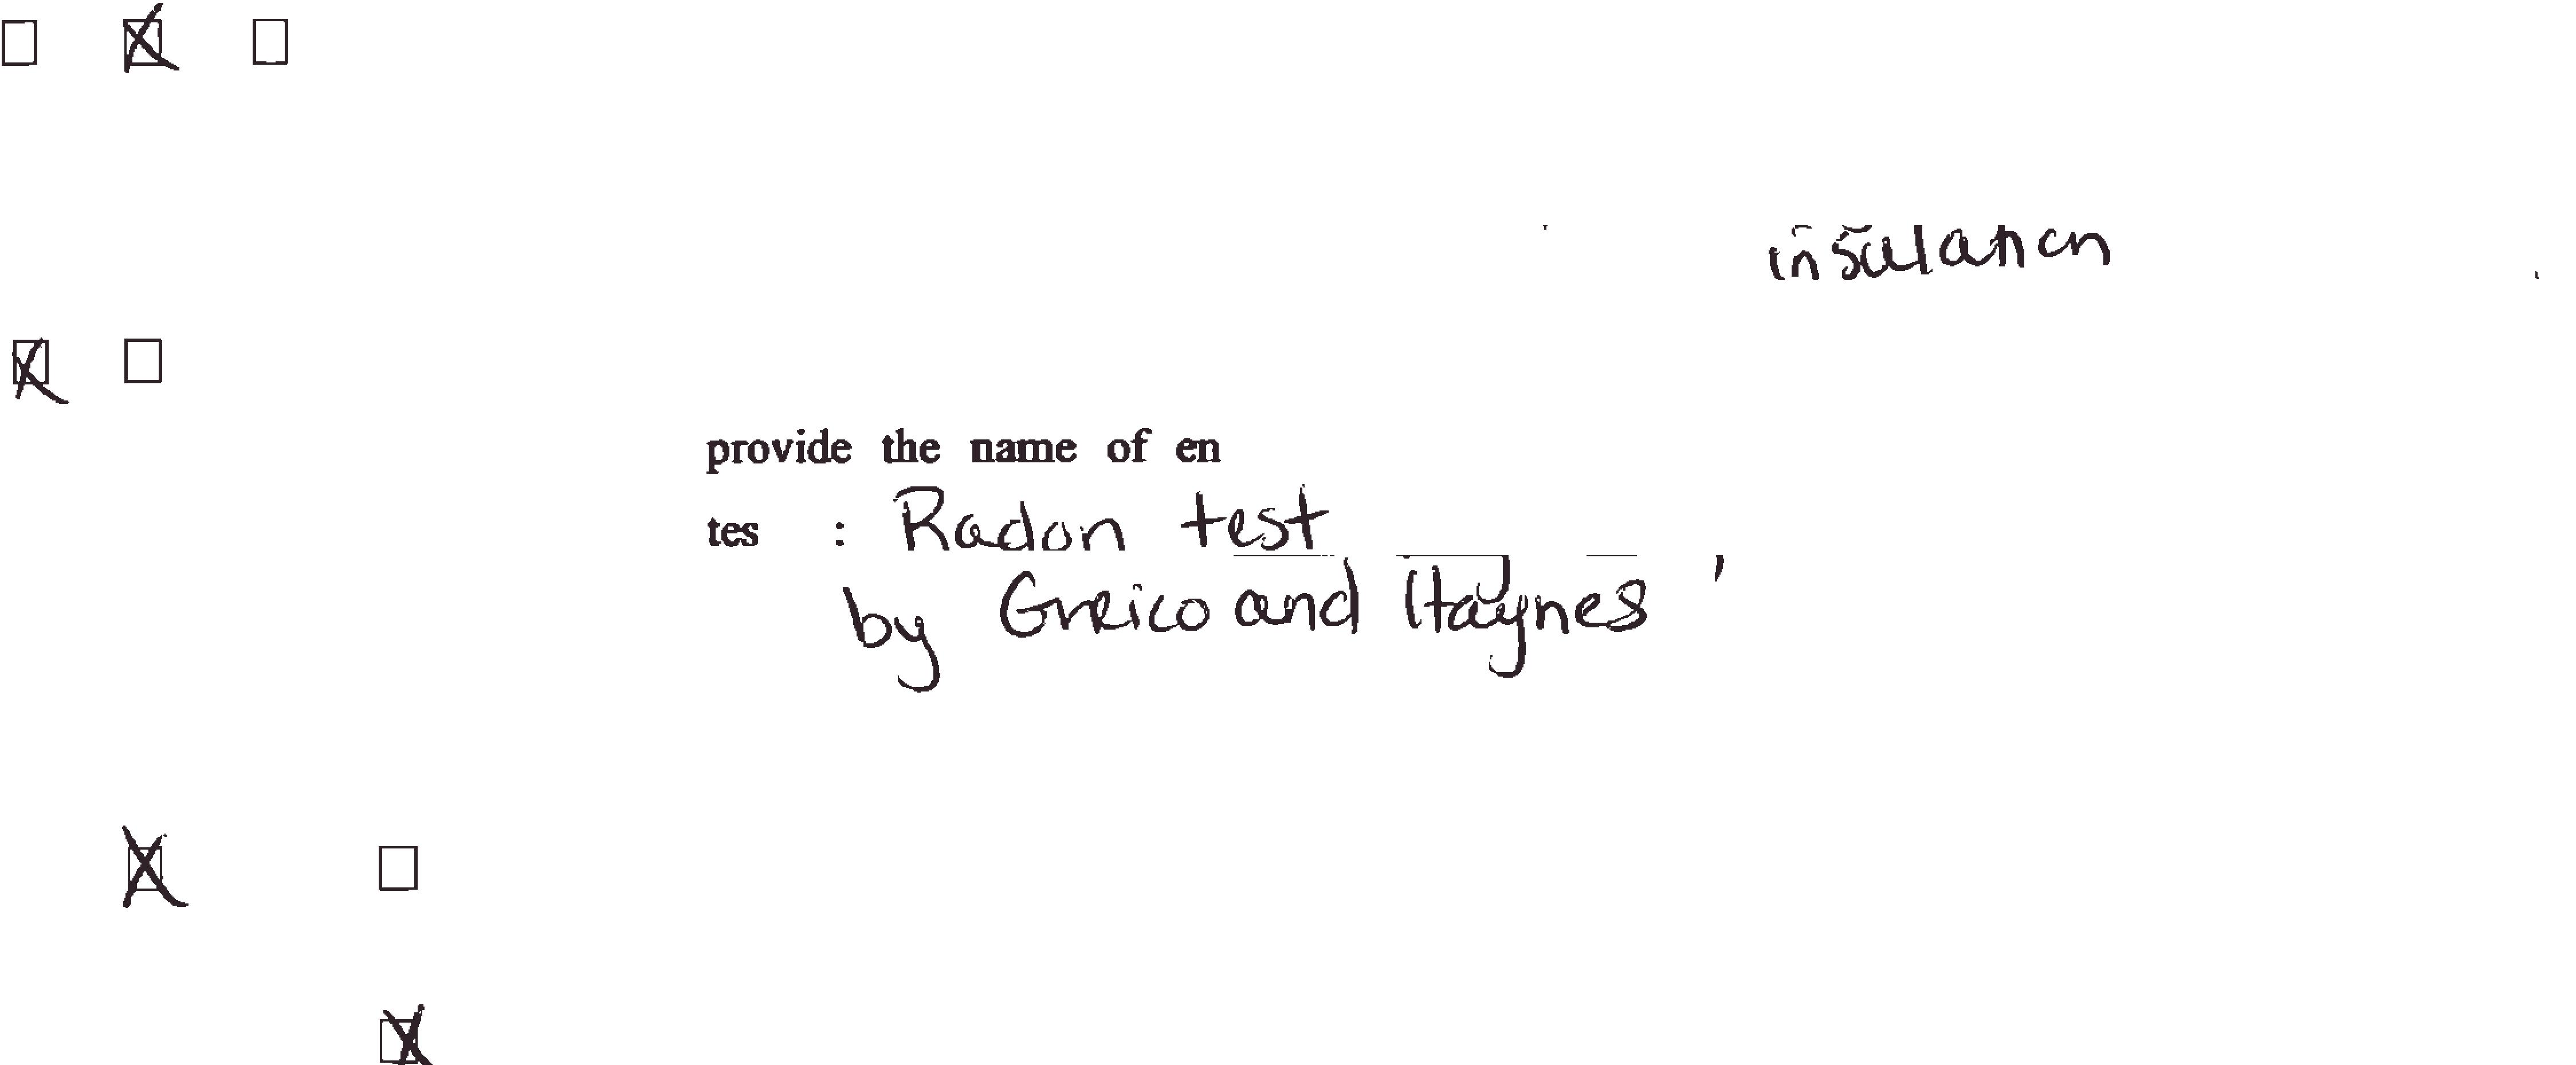 ☐ ☒ ☐
insulation
☒ ☐
provide the name of en
tes : Radon test
by Greico and Haynes
☒ ☐
☒